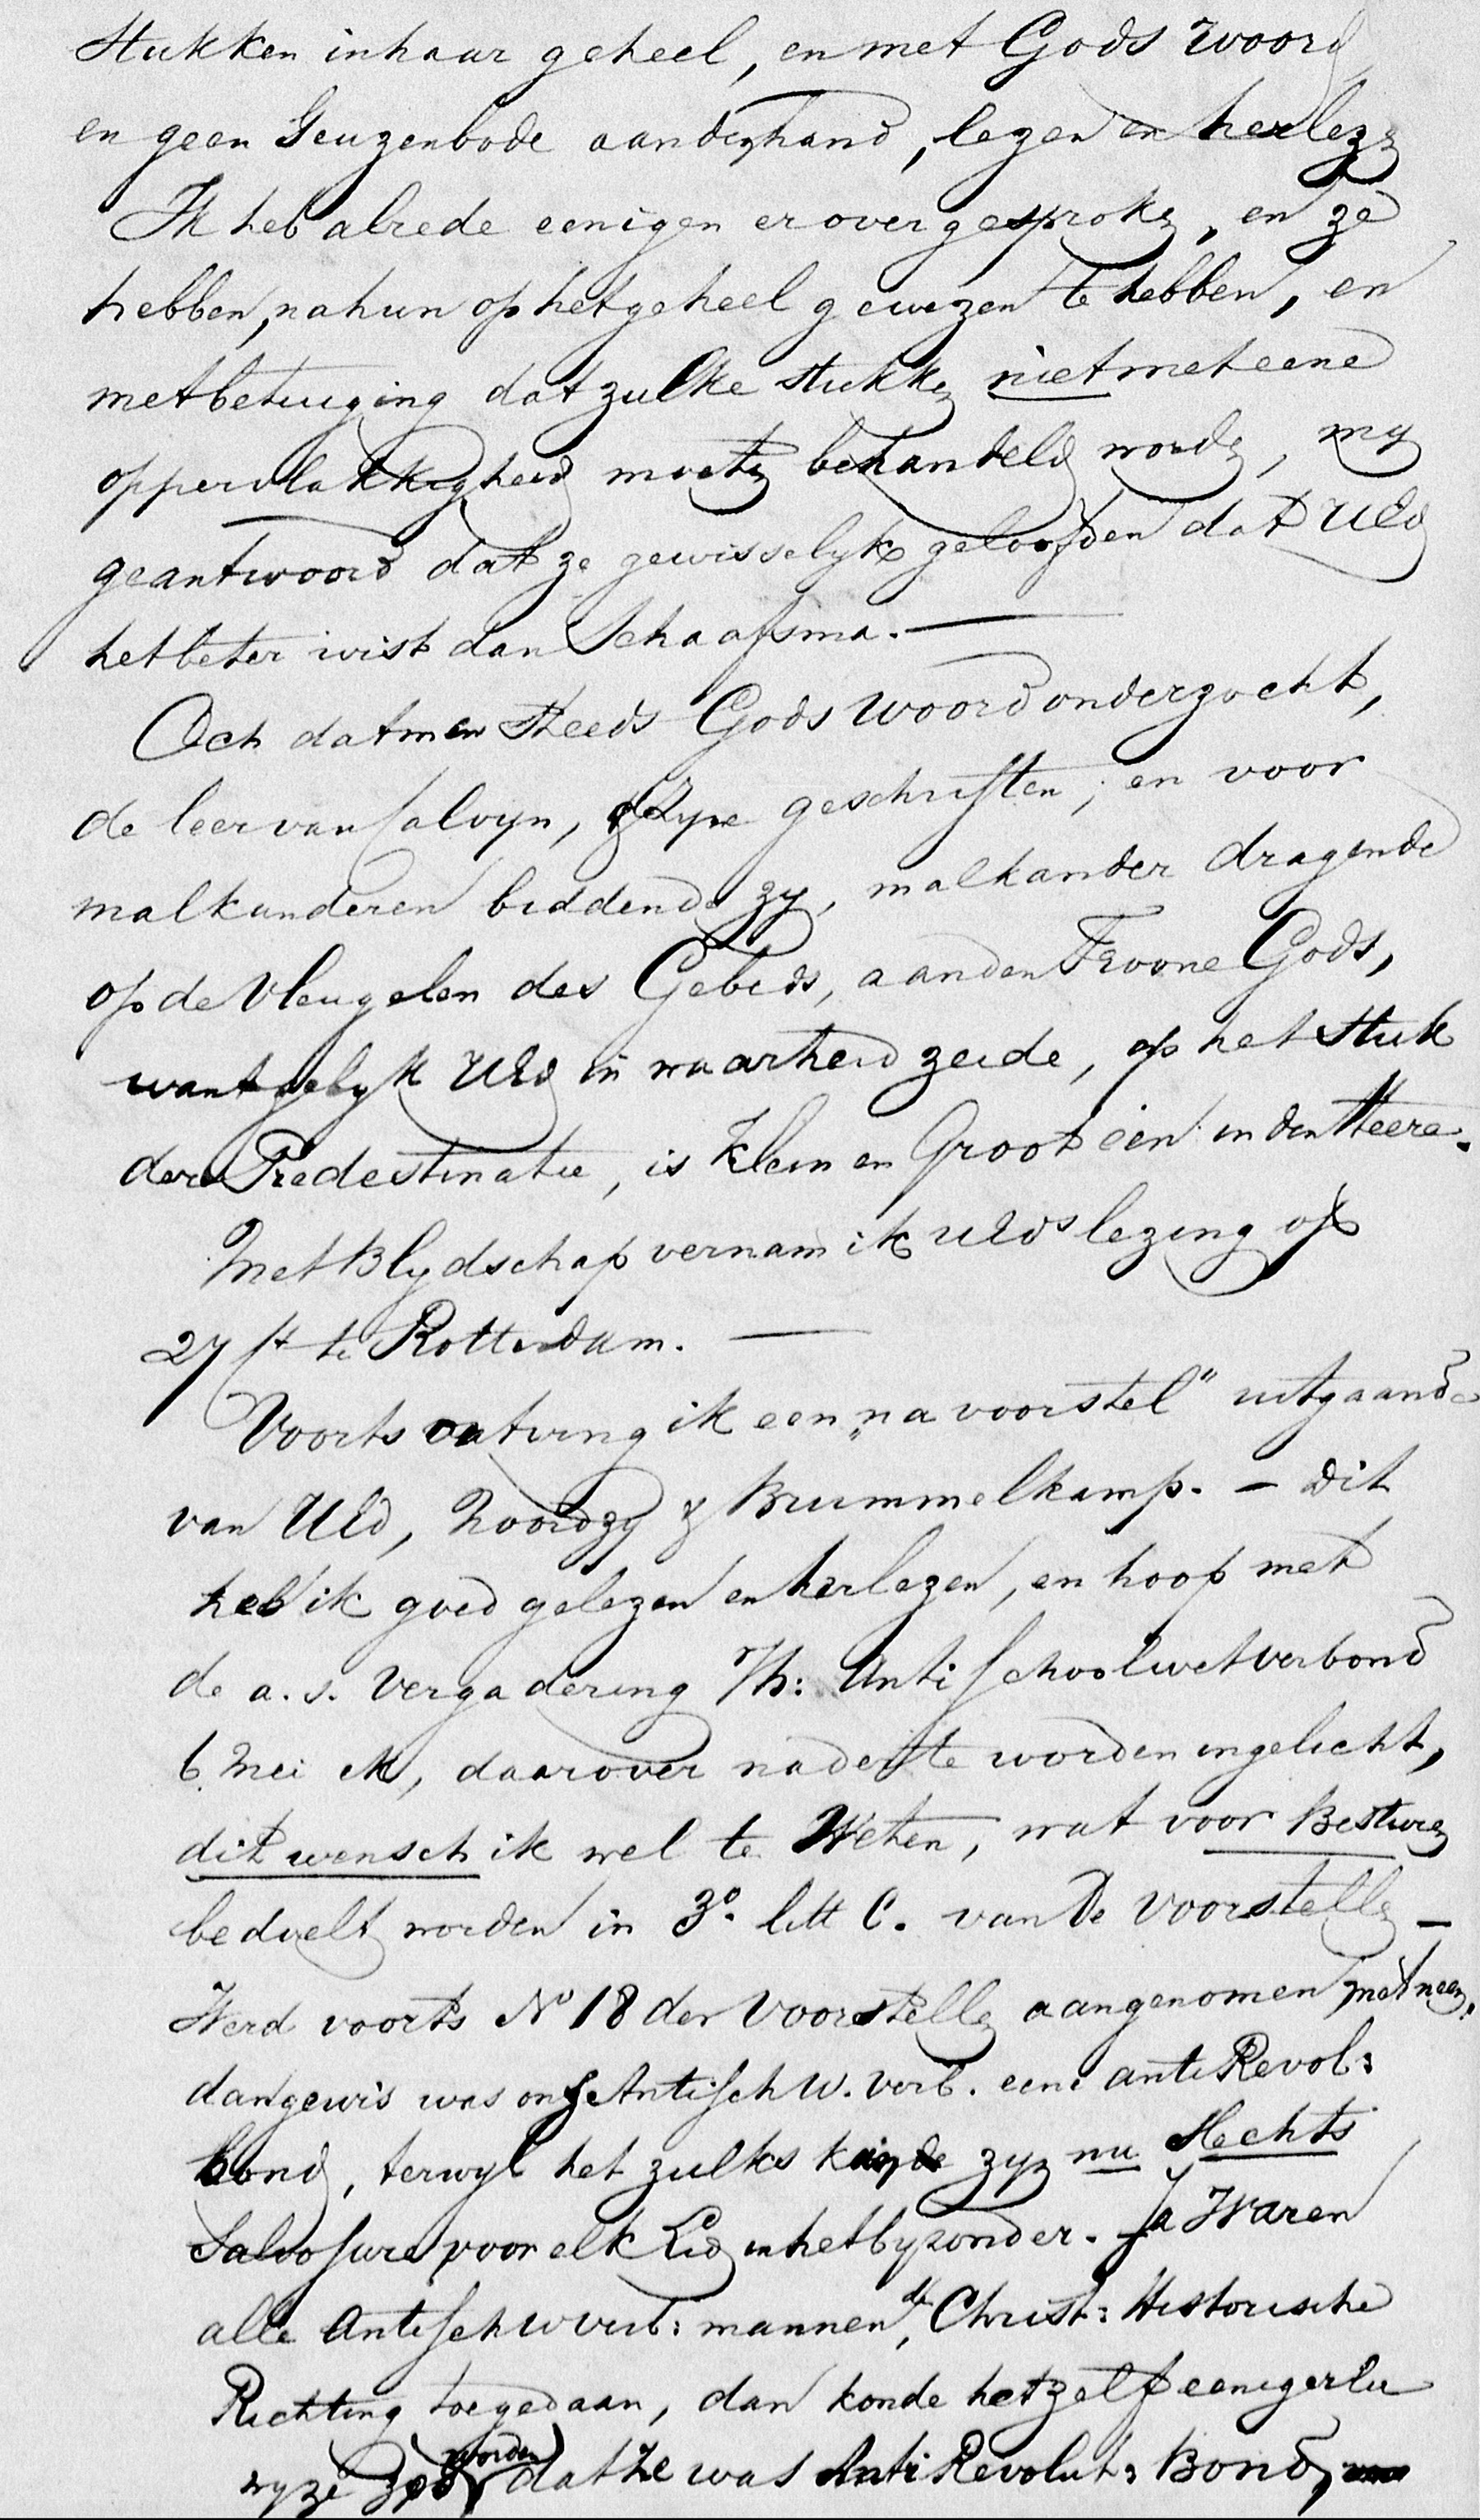 stukken in haar geheel, en met Gods woord
en geen Geuzenbode aan de hand, lezen en herlezen
Ik heb alrede eenigen er over gesproken, en ze
hebben, na hun op het geheel gewezen te hebben, en
met betuiging dat zulke stukken niet met eene
oppervlakkigheid moeten behandeld worden, my
geantwoord dat ze gewisselyk geloofden dat UEd
het beter wist dan Schaafsma. —
Och dat men steeds Gods woord onderzocht,
de leer van Calvyn, geschriften, en voor
malkanderen biddende zy, malkander dragende
op de vleugelen des Gebeds, aan den Troone Gods,
want gelyk UEd in waarheid zeide, op het stuk
der Predestinatie, is Klein en Groot één in den Heere.
Met Blydschap vernam ik UEds lezing op
27 st te Rotterdam. —
Voorts ontving ik een „na voorstel" uitgaande
van UEd, Noordzy & Brummelkamp. – Dit
heb ik goed gelezen en herlezen, en hoop met
de a.s. Vergadering Th: Anti Schoolwetverbond
6 Mei ek, daarover nader te worden ingelicht,
dit wensch ik wel te Weten, wat voor Besturen
bedoelt worden in 3o. litt C. van De Voorstellen –
Werd voorts No 18 der Voorstellen aangenomen met neen,
dan gewis was onze AntiSchW. verb. eene anti Revol:
bond, terwyl het zulks konde zyn nu slechts
Salvo jure voor elk Lid in het byzonder. Ja Waren
alle AntiSchwverb: mannen, de Christ: Historische
Richting toegedaan, dan konde het zelf eenigerlei
wyze worden dat ze was Anti Revolut: Bond,